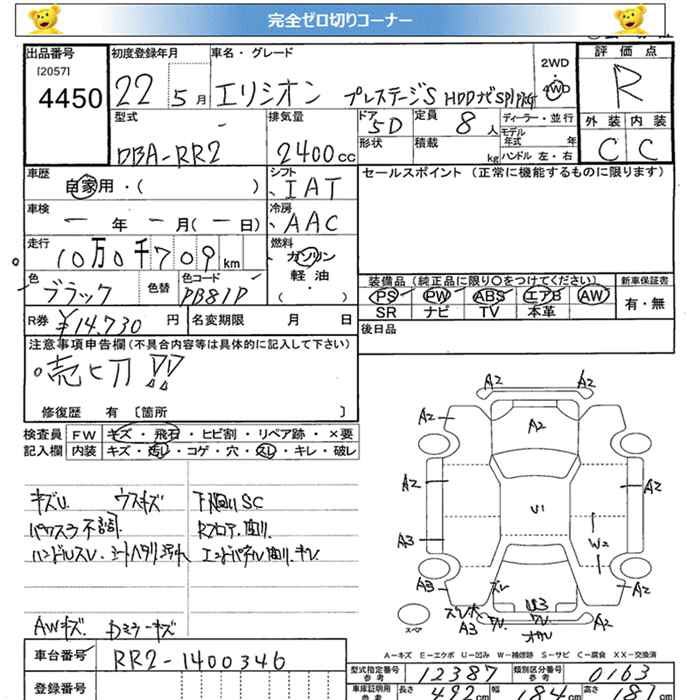 完全ゼロ切りコーナー
出品番号 初度登録年月 車名・グレード 2WD 評価点
[2057]
4450 22 5月 エリシオン プレステージS HDDナビSPIPKG 4WD R
型式 排気量 ドア 定員 ディーラー・並行 外装 内装
DBA-RR2 2400cc 5D 8人 モデル年式 年 C C
形状 積載 kg ハンドル 左・右
車歴 シフト セールスポイント (正常に機能するものに限ります)
自家用・( ) IAT
車検 冷房
ー年ー月(ー日) AAC
走行 燃料
10万0千709km ガソリン
軽油
( )
色 色替 色コード 装備品 (純正品に限り○をつけてください) 新車保証書
ブラック PB81P PS PW ABS エアB AW 有・無
SR ナビ TV 本革
R券 ¥14,730円 名変期限 月 日 後日品
注意事項申告欄(不具合内容等は具体的に記入して下さい)
売ヒ刀!!
修復歴 有 〔箇所 〕
検査員 FW キズ・飛石・ヒビ割・リペア跡・×要
記入欄 内装 キズ・汚レ・コゲ・穴・スレ・キレ・破レ
キズU ウスキズ 下廻りSC
パワスラ不調 Rフロア、曲り
ハンドルスレ・シートヘタリ汚れ エンドパネル曲り、キレ
AWキズ ドアミラーキズ
A2 A2
A2 A2 A2
A2 U1 A2
A3 W2
A3 スレ U3 A2
A3
スペア
A-キズ E-エクボ U-凹み W-補修跡 S-サビ C-腐食 XX-交換済
車台番号 RR2-1400346
型式指定番号 参考 12387 類別区分番号 参考 0163
登録番号
車庫証明用 参考 長さ 492cm 幅 184cm 高さ 181cm